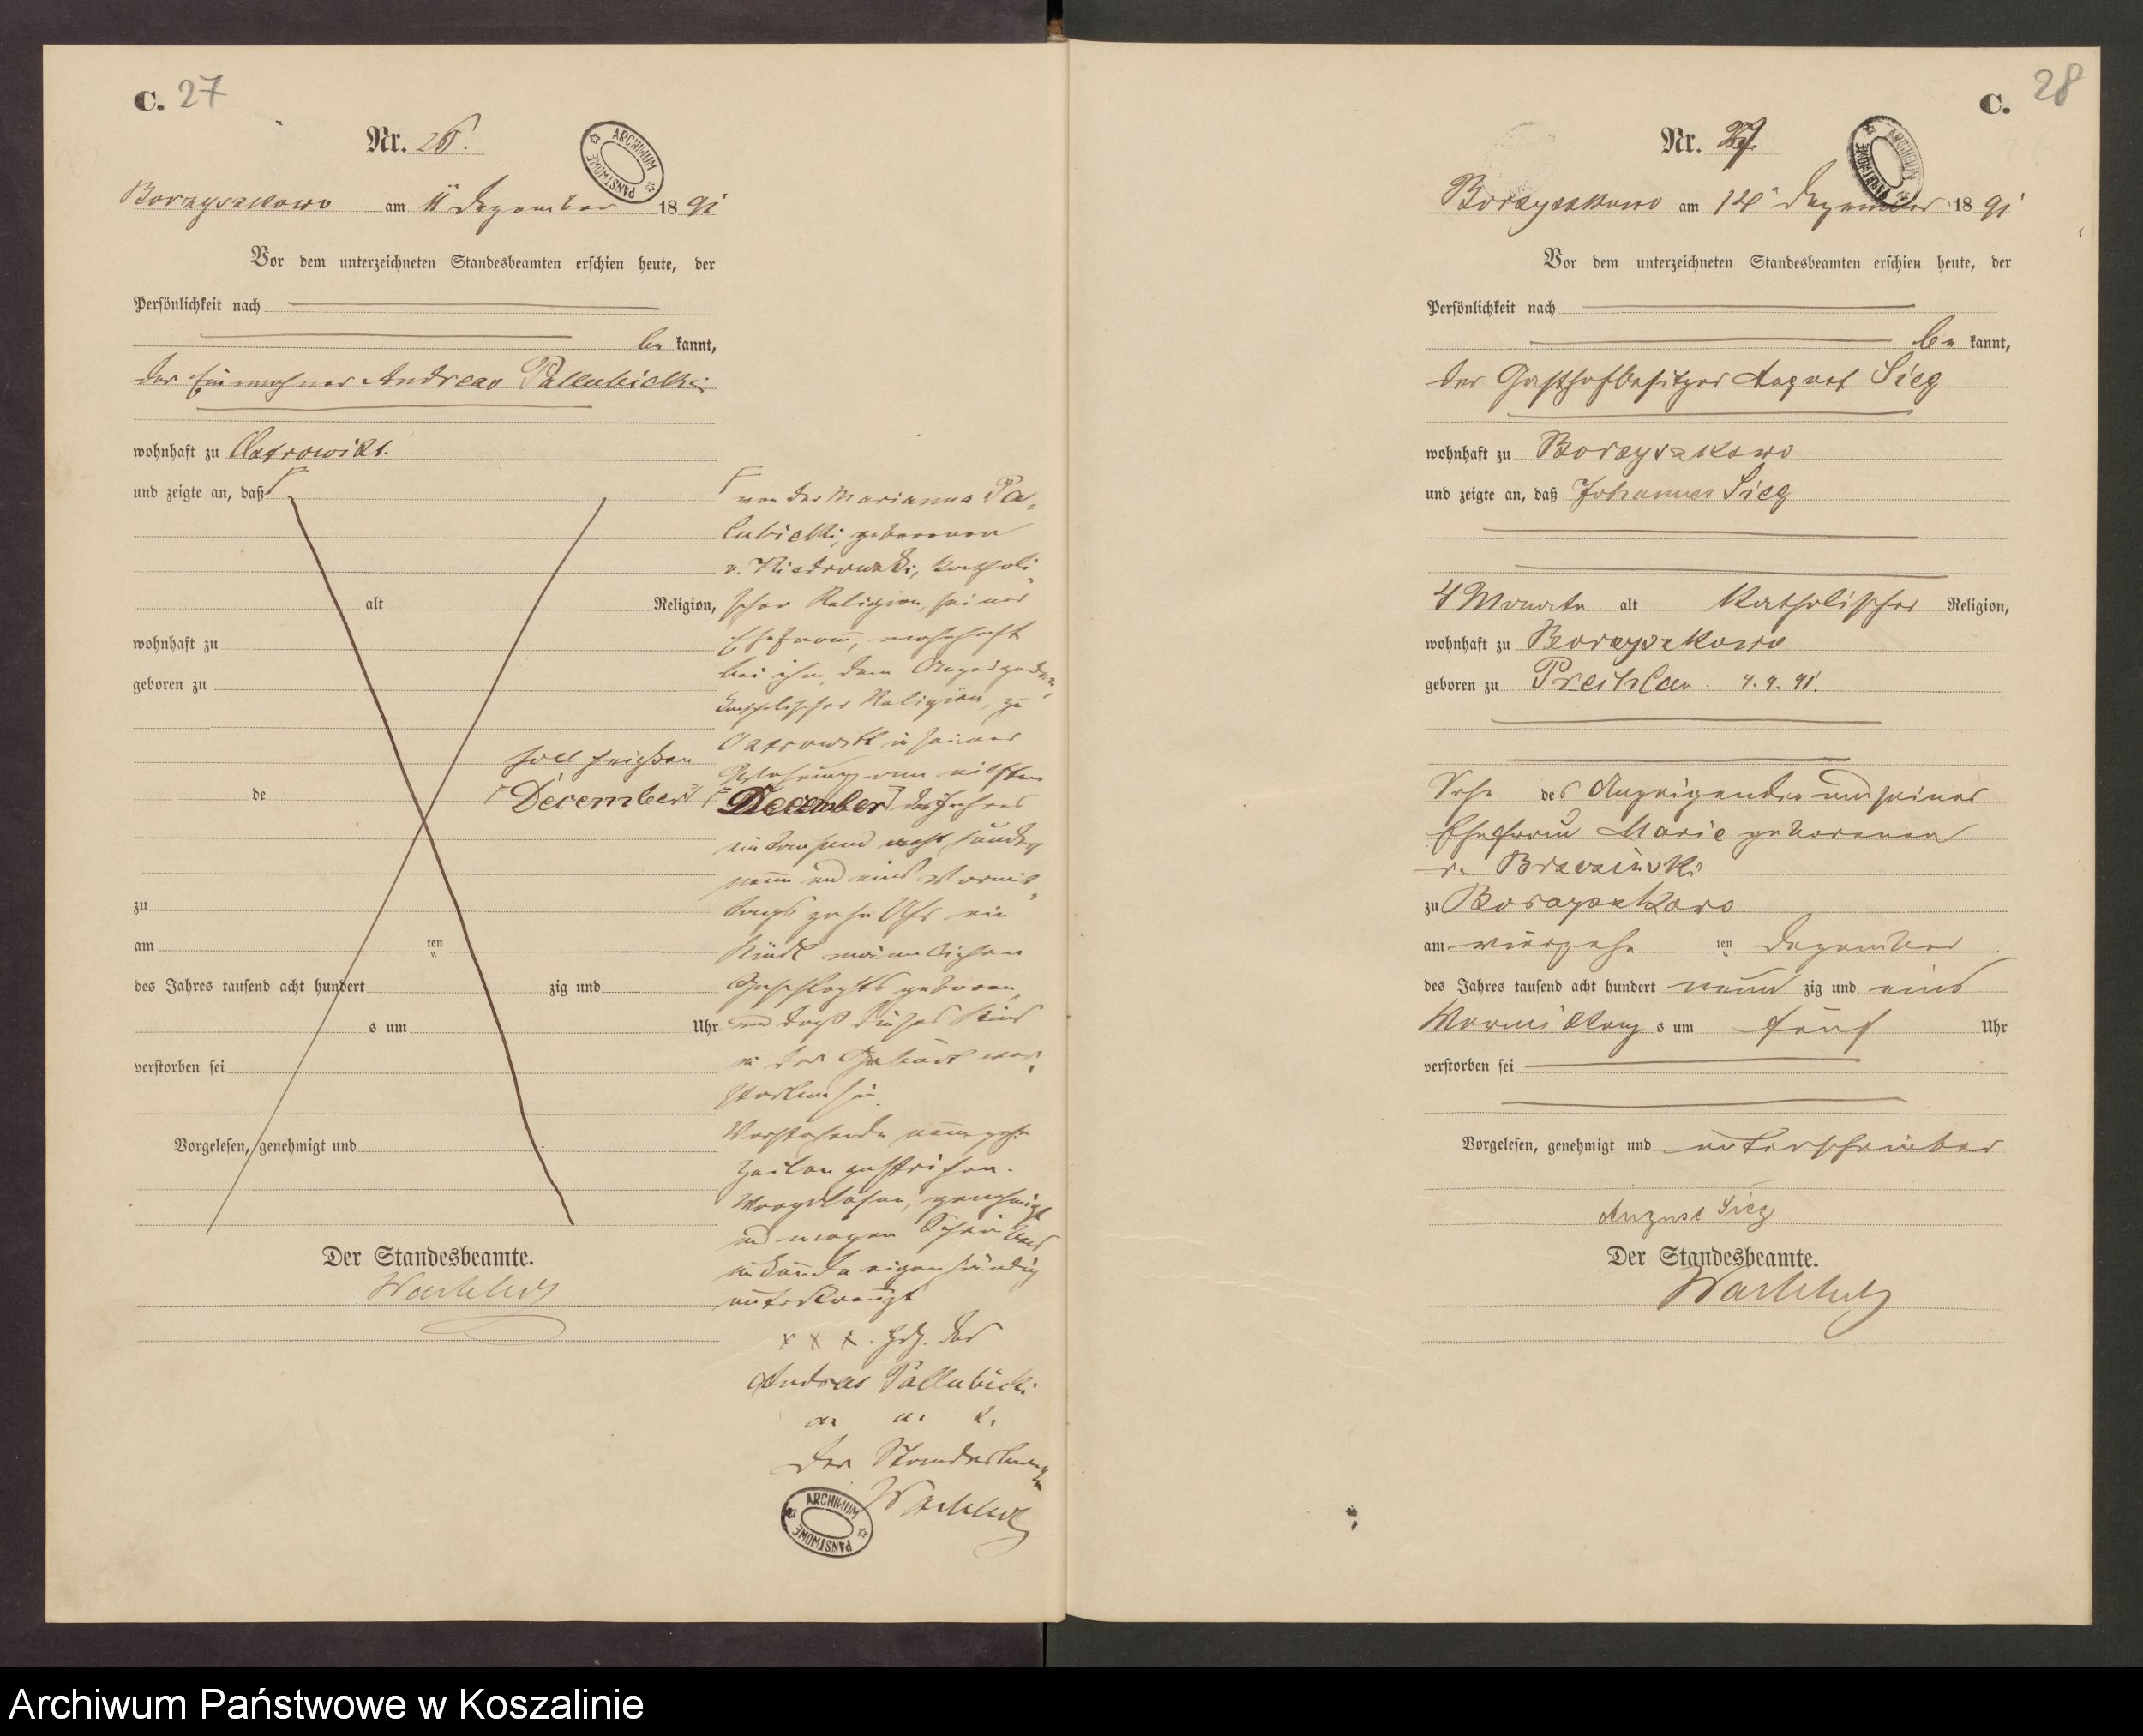 C. 27
Nr. 26.
ARCHIWUM PAŃSTWOWE
Borzyszkowo am 11 Dezember 1891
Vor dem unterzeichneten Standesbeamten erschien heute, der
Persönlichkeit nach
be kannt,
der Einwohner Andreas Pallubicki
wohnhaft zu Ostrowitt.
und zeigte an, daß
alt Religion,
wohnhaft zu
geboren zu
soll heißen
de December
zu
am ten
des Jahres tausend acht hundert zig und
s um Uhr
verstorben sei
Vorgelesen, genehmigt und
Der Standesbeamte.
von der Marianna Pa-
lubicki, geborenen
v. Kiedrowski, katholi-
scher Religion, seiner
Ehefrau, wohnhaft
bei ihm, dem Anzeigenden,
katholischer Religion, zu
Ostrowitt in seiner
Behausung am eilften
December des Jahres
ein tausend acht hundert
neun und eins Vormit-
tags zehn Uhr ein
Kind männlichen
Geschlechts geboren,
und daß dieses Kind
in der Geburt ver-
storben sei.
Vorstehende neunzehn
Zeilen gestrichen.
Vorgelesen, genehmigt
und wegen Schreibens
unkunde eigenhändig
unterkreuzt
x x x. Hdz. des
Andreas Pallubicki
Der Standesbeamte
ARCHIWUM PAŃSTWOWE
C. 28
Nr. 27.
ARCHIWUM PAŃSTWOWE
Borzyszkowo am 14 Dezember 1891
Vor dem unterzeichneten Standesbeamten erschien heute, der
Persönlichkeit nach
be kannt,
der Gasthofbesitzer August Sieg
wohnhaft zu Borzyszkowo
und zeigte an, daß Johannes Sieg
4 Monate alt katholischer Religion,
wohnhaft zu Borzyszkowo
geboren zu
Sohn des Anzeigenden und seiner
Ehefrau Marie geborenen
v.
zu Borzyszkowo
am vierzehn ten Dezember
des Jahres tausend acht hundert neun zig und eins
Vormittag s um fünf Uhr
verstorben sei
Vorgelesen, genehmigt und unterschrieben
August Sieg
Der Standesbeamte.
Archiwum Państwowe w Koszalinie